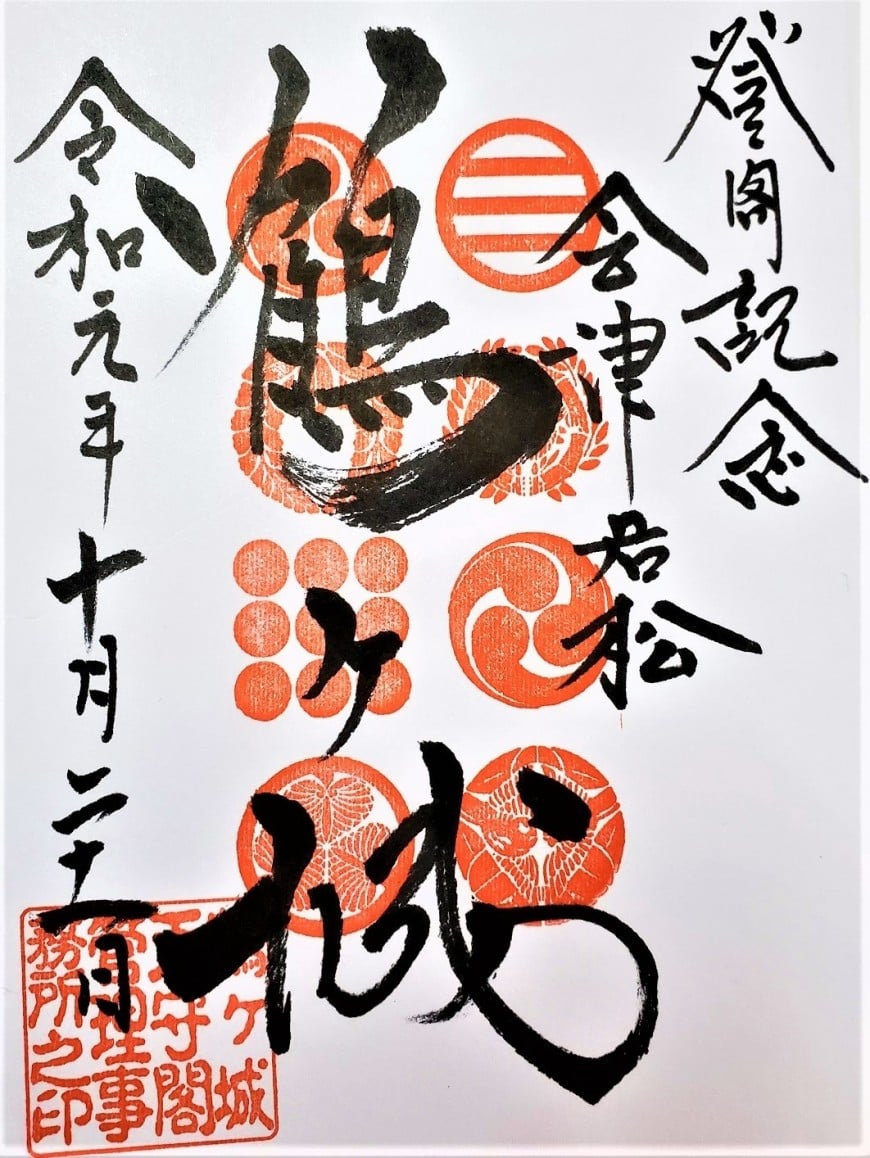 登閣記念
会津若松
鶴ヶ城
令和元年十月二十一日
鶴ケ城
天守閣
管理事
務所之印